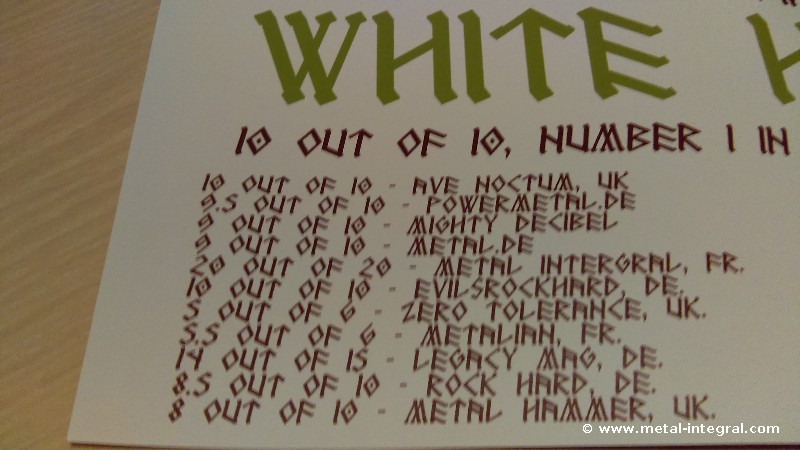 WHITE H
10 OUT OF 10, NUMBER 1 IN
10 OUT OF 10 - AVE NOCTUM, UK
9.5 OUT OF 10 - POWERMETAL.DE
9 OUT OF 10 - MIGHTY DECIBEL
9 OUT OF 10 - METAL.DE
20 OUT OF 20 - METAL INTERGRAL, FR.
10 OUT OF 10 - EVILSROCKHARD, DE.
5 OUT OF 6 - ZERO TOLERANCE, UK.
5.5 OUT OF 6 - METALIAN, FR.
14 OUT OF 15 - LEGACY MAG, DE.
8.5 OUT OF 10 - ROCK HARD, DE.
8 OUT OF 10 - METAL HAMMER, UK.
© www.metal-integral.com